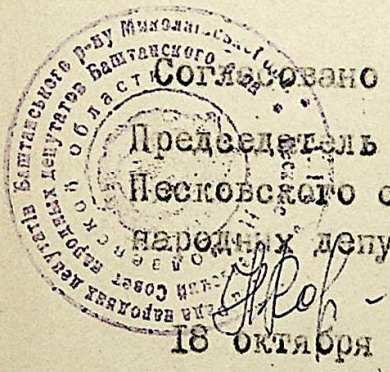 Согласовано
Председатель
Песковского с
народных депу
18 октября
депутатів Баштанського р-ну Миколаївської
Совет народных депутатов Баштанского
области